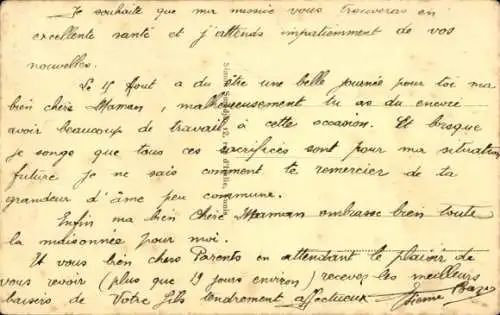 Je souhaite que ma missive vous trouveras en
excellente santé et j'attends impatiemment de vos
nouvelles.
Le 15 Aout a du être une belle journée pour toi ma
bien chère Maman, malheureusement tu as du encore
avoir beaucoup de travail, à cette occasion. Et lorsque
je songe que tous ces sacrifices sont pour ma situation
future je ne sais comment te remercier de ta
grandeur d'âme peu commune.
Enfin ma bien Chère Maman embrasse bien toute
la maisonnée pour moi.
Et vous bien chers Parents en attendant le plaisir de
vous revoir (plus que 19 jours environ) recevez les meilleurs
baisers de Votre fils tendrement affectueux